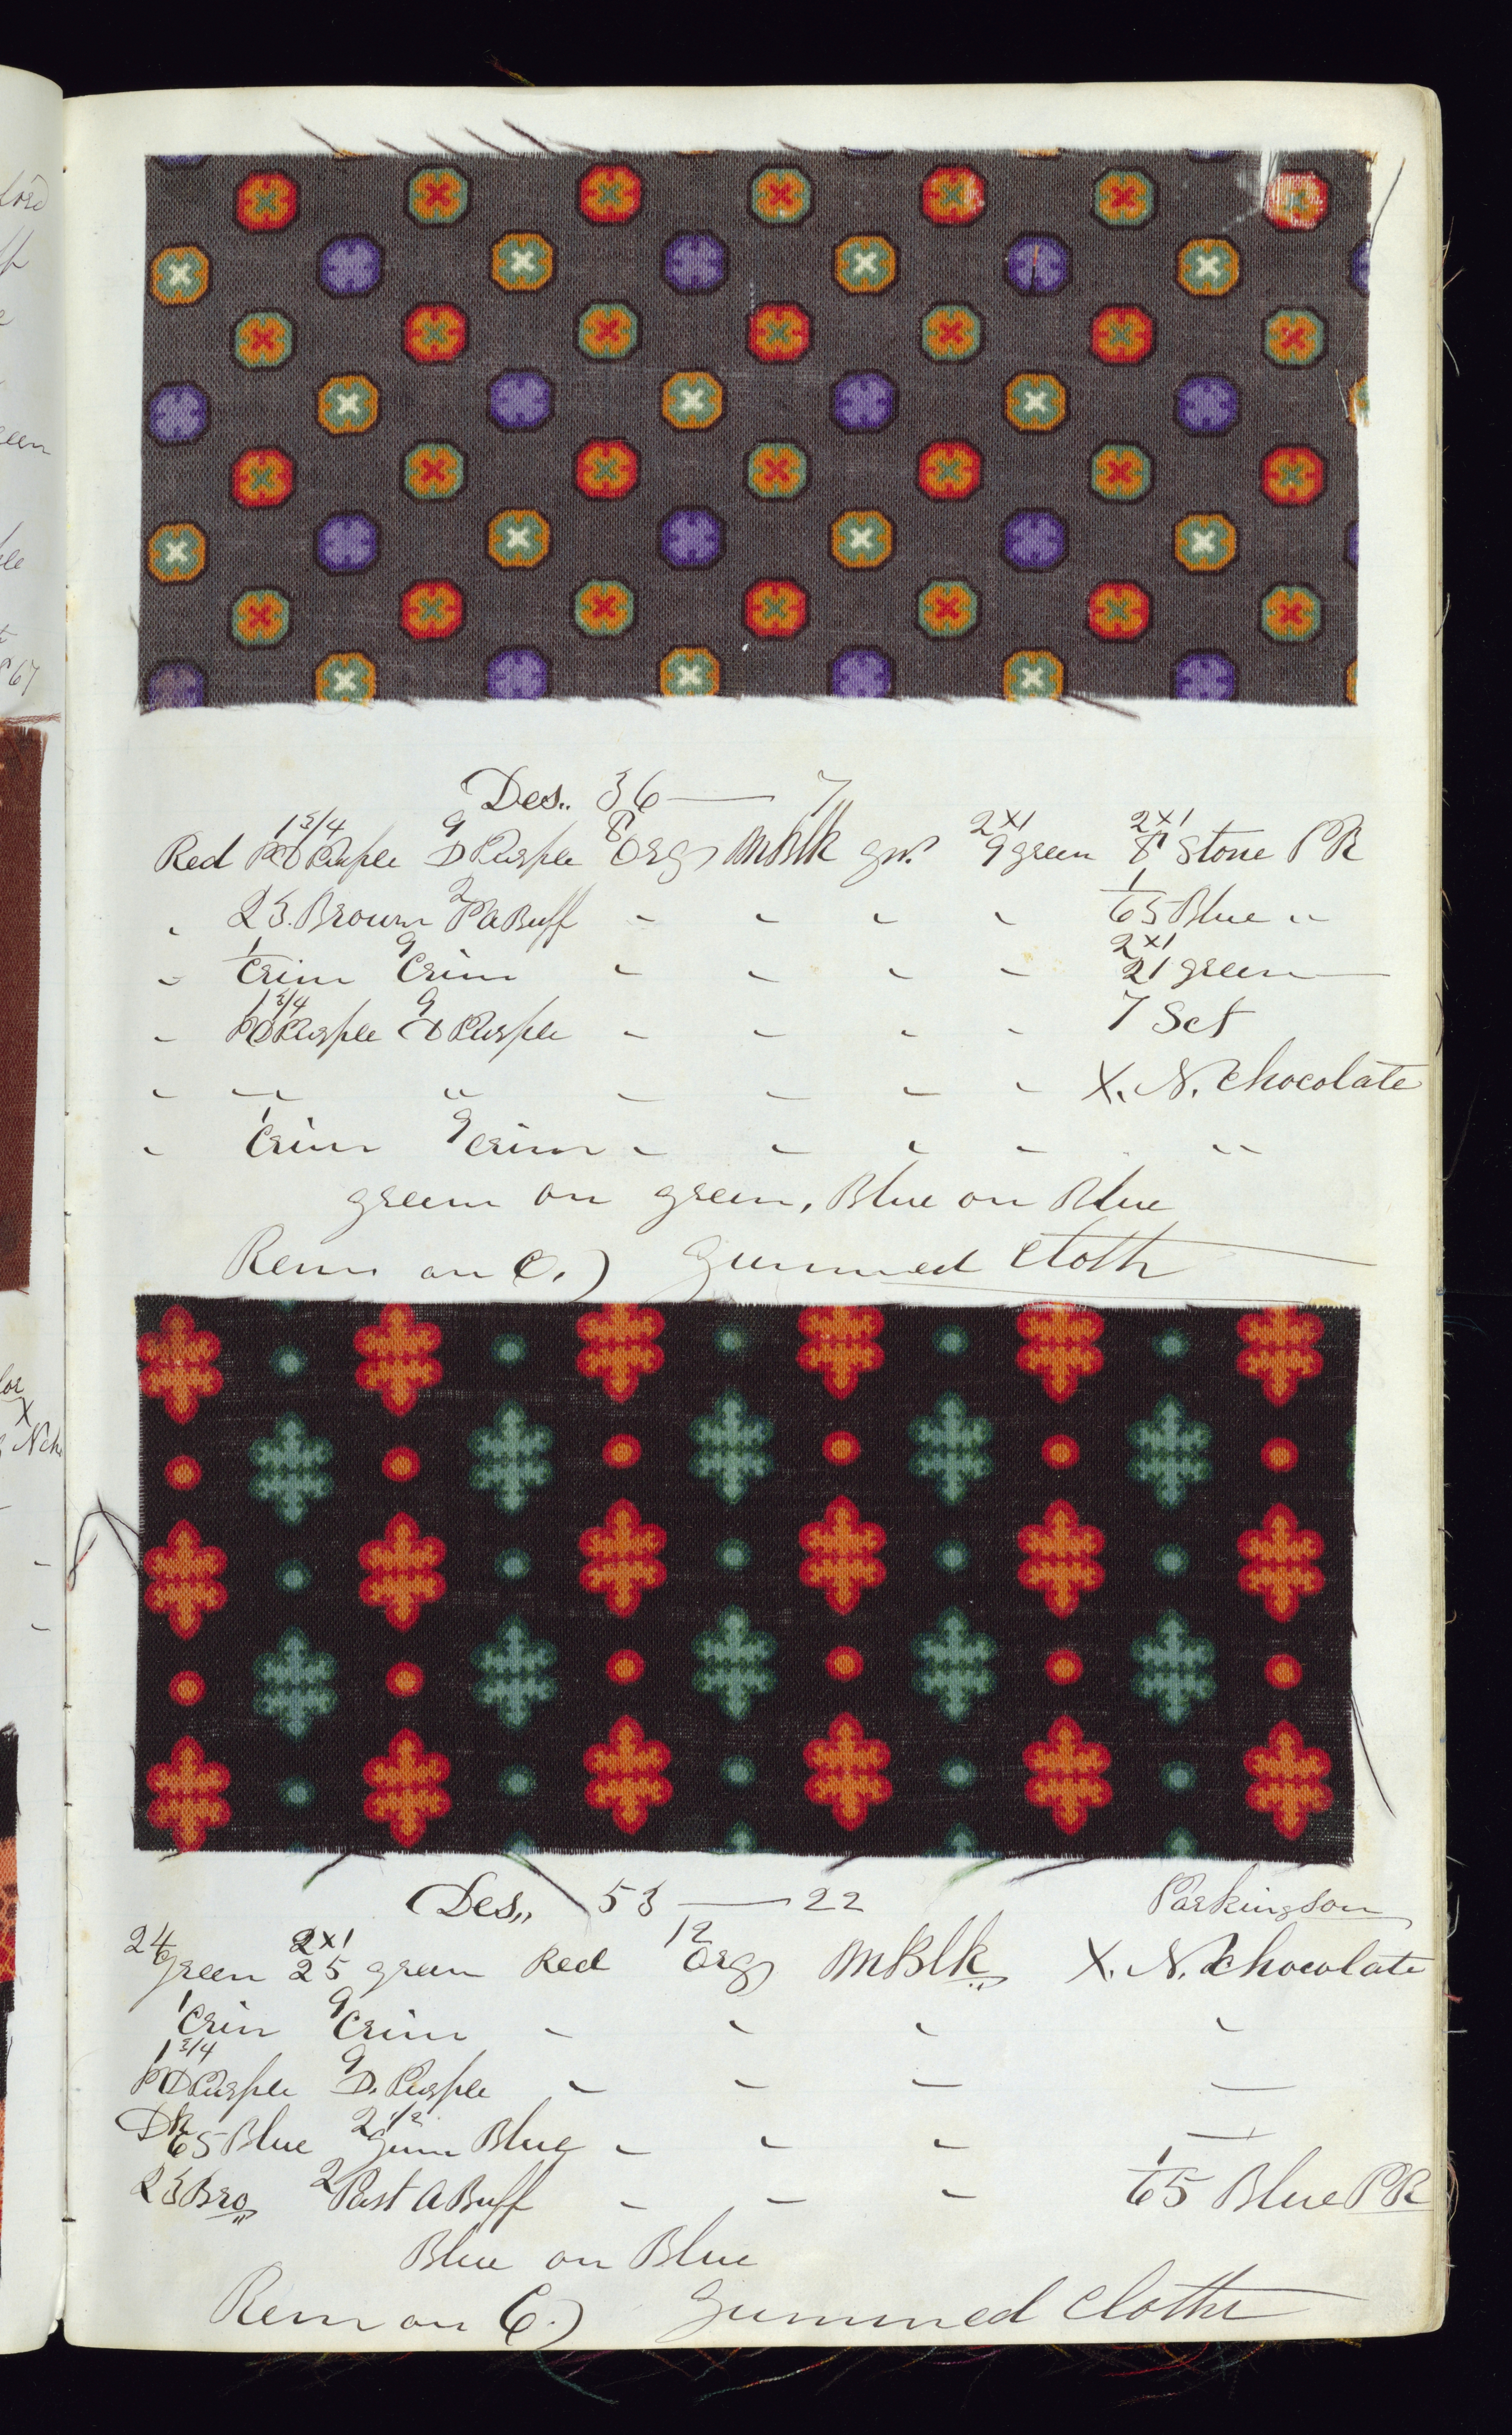 Des,, 36 — 7,,
Red 1 3/4 PD Purple 9 D Purple 8 Org MBlk gn? 2x1 9 green 2x1 8 Stone PR
" 23. Brown 2 P A Buff " " " " 1 65 Blue "
" 1 Crim 9 Crim " " " " 2x1 21 green
" 1 3/4 PD Purple 9 D Purple " " " " 7 Set
" " " " " " " X. N. Chocolate
" 1 Crim 9 Crim " " " " "
green on green, Blue on Blue
Rem on C.) Gummed Cloth
Des,, 53 — 22 Parkinson
24 Green 2x1 25 green Red 12 Org MBlk X. N. Chocolate
1 Crim 9 Crim " " " "
1 3/4 PD Purple 9 D. Purple " " " —
Dk 65 Blue 2 1/2 Gum Blue " " " —
23 Bro 2 Past A Buff " " " 1 65 Blue PR
Blue on Blue
Rem on C.) Gummed Cloth